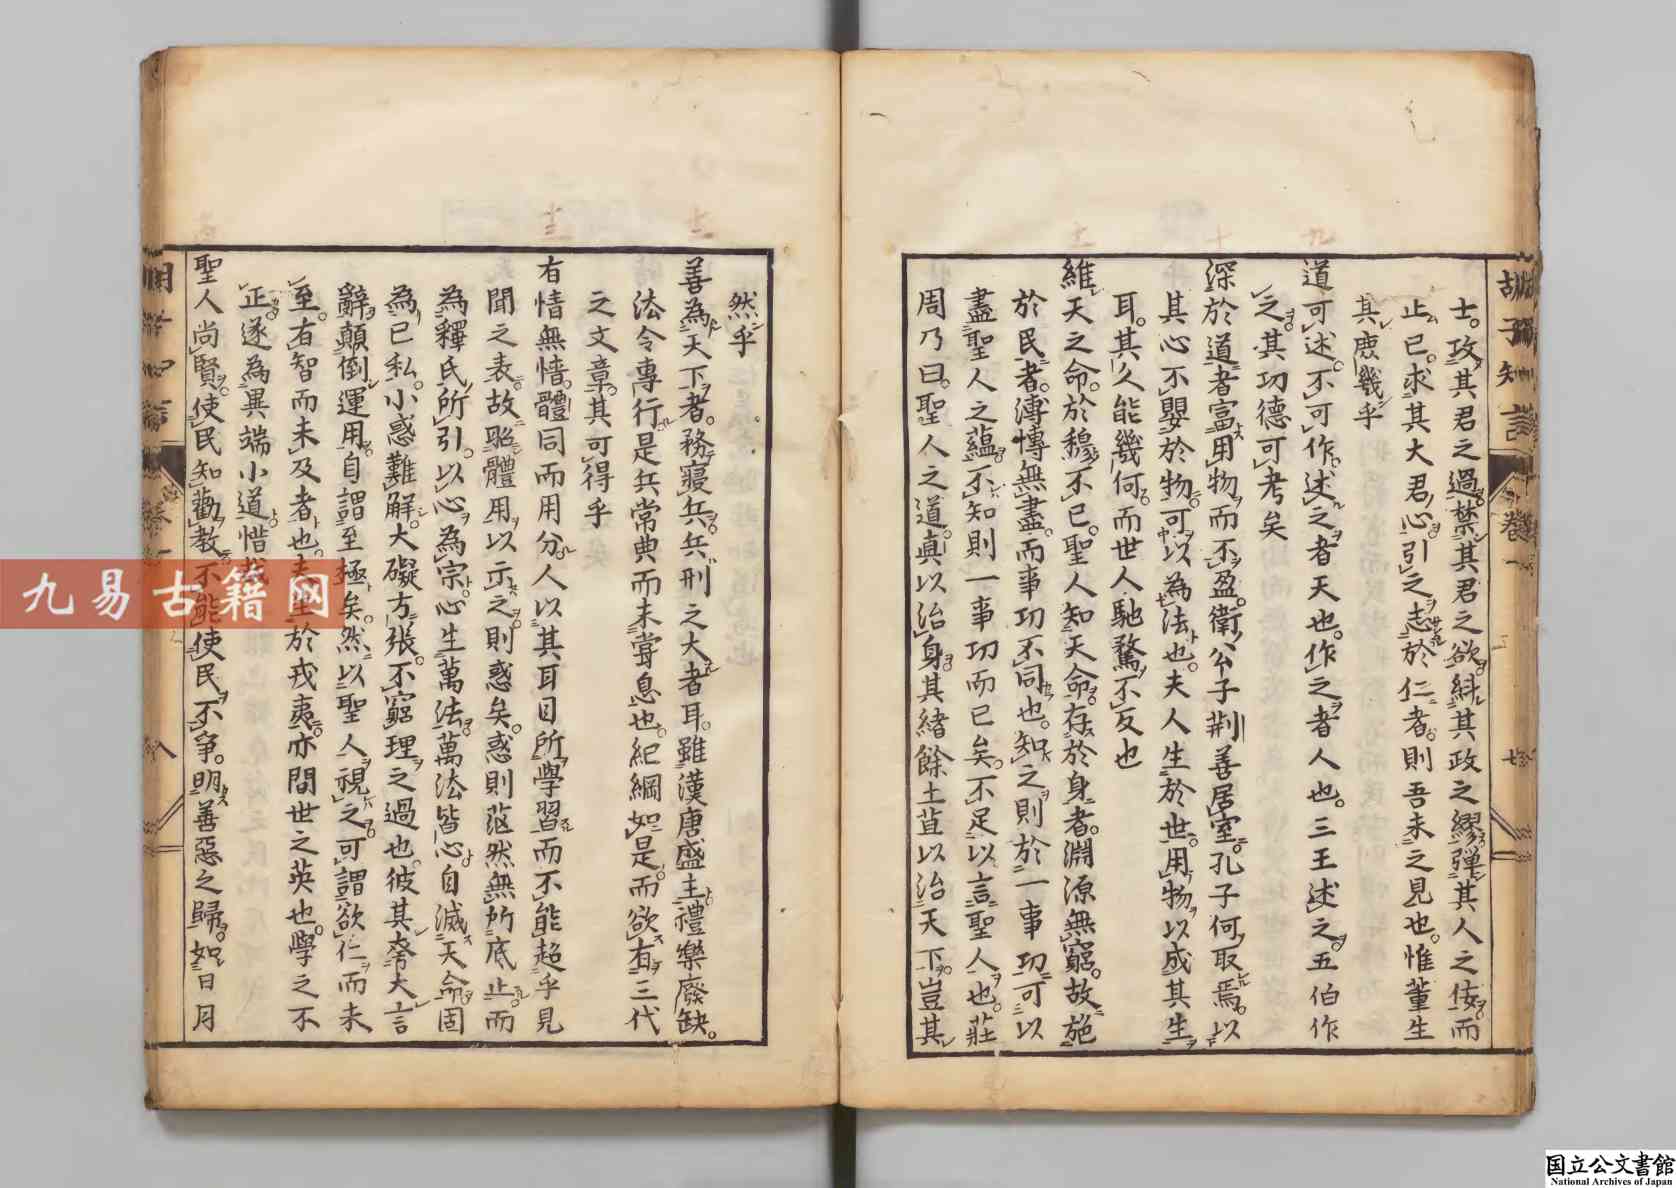 胡子知言 卷一 七
士攻其君之過禁其君之欲糾其政之繆彈其人之佞而
止已求其大君心引之志於仁者則吾未之見也惟董生
其庶幾乎
九
道可述不可作述之者天也作之者人也三王述之五伯作
之其功德可考矣
十
深於道者富用物而不盈衛公子荆善居室孔子何取焉以
其心不嬰於物可以為法也夫人生於世用物以成其生
耳其久能幾何而世人馳騖不反也
十一
維天之命於穆不已聖人知天命存於身者淵源無窮故施
於民者溥博無盡而事功不同也知之則於一事功可以
盡聖人之蘊不知則一事功而已矣不足以言聖人也莊
周乃曰聖人之道真以治身其緒餘土苴以治天下豈其
然乎
十二
善為天下者務寢兵兵刑之大者耳雖漢唐盛主禮樂廢缺
法令專行是兵常典而未嘗息也紀綱如是而欲有三代
之文章其可得乎
十三
有情無情體同而用分人以其耳目所學習而不能超乎見
聞之表故昭體用以示之則惑矣惑則茫然無所底止而
為釋氏所引以心為宗心生萬法萬法皆心自滅天命固
為已私小惑難解大礙方張不窮理之過也彼其夸大言
辭顛倒運用自謂至極矣然以聖人視之可謂欲仁而未
至有智而未及者也夫生於戎夷亦間世之英也學之不
正遂為異端小道惜哉
聖人尚賢使民知勸教不能使民不爭明善惡之歸如日月
八
九易古籍网
国立公文書館
National Archives of Japan